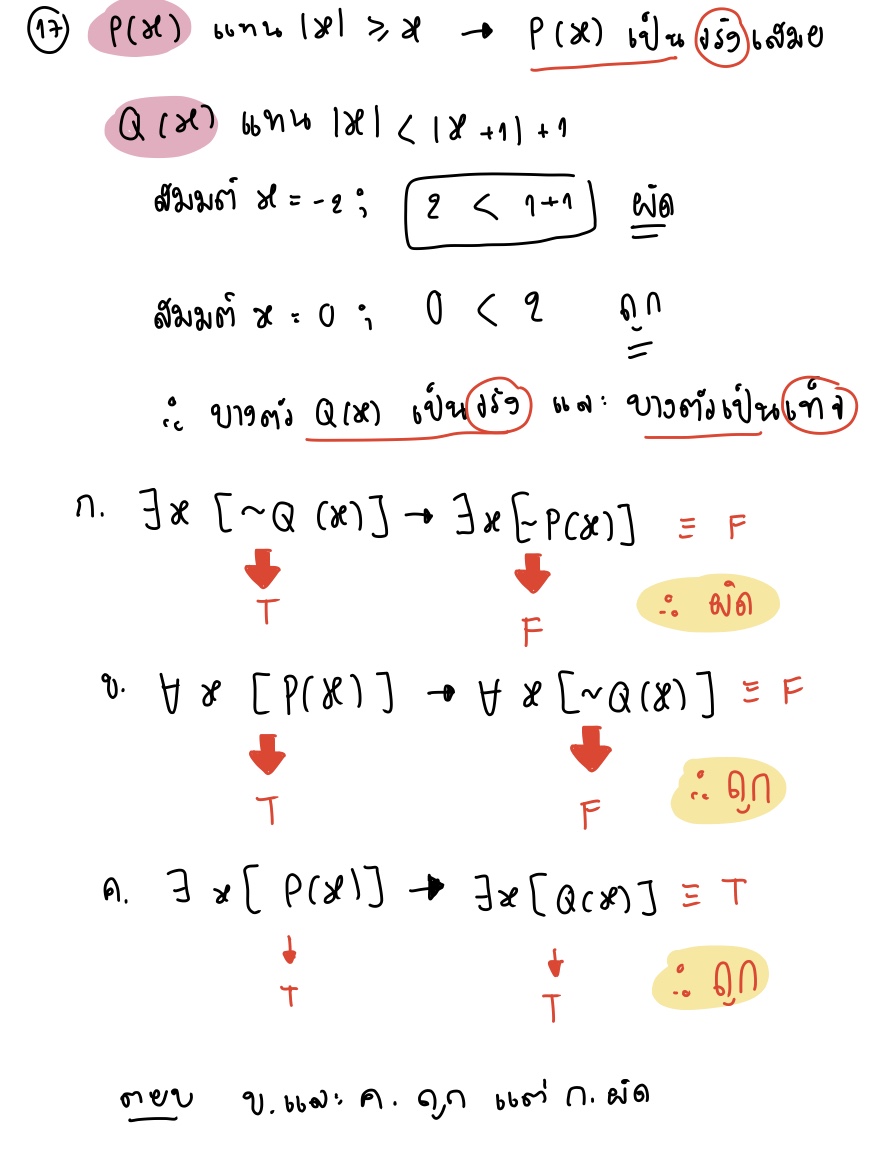 17 P(x) แทน |x| ≥ x → P(x) เป็น จริง เสมอ
Q(x) แทน |x| < |x+1|+1
สมมติ x = -2 ; 2 < 1+1 ผิด
สมมติ x = 0 ; 0 < 2 ถูก
∴ บางตัว Q(x) เป็น จริง และ บางตัวเป็น เท็จ
ก. ∃x [~Q(x)] → ∃x [~P(x)] ≡ F
T F ∴ ผิด
ข. ∀x [P(x)] → ∀x [~Q(x)] ≡ F
T F ∴ ถูก
ค. ∃x [P(x)] → ∃x [Q(x)] ≡ T
T T ∴ ถูก
ตอบ ข. และ ค. ถูก แต่ ก. ผิด